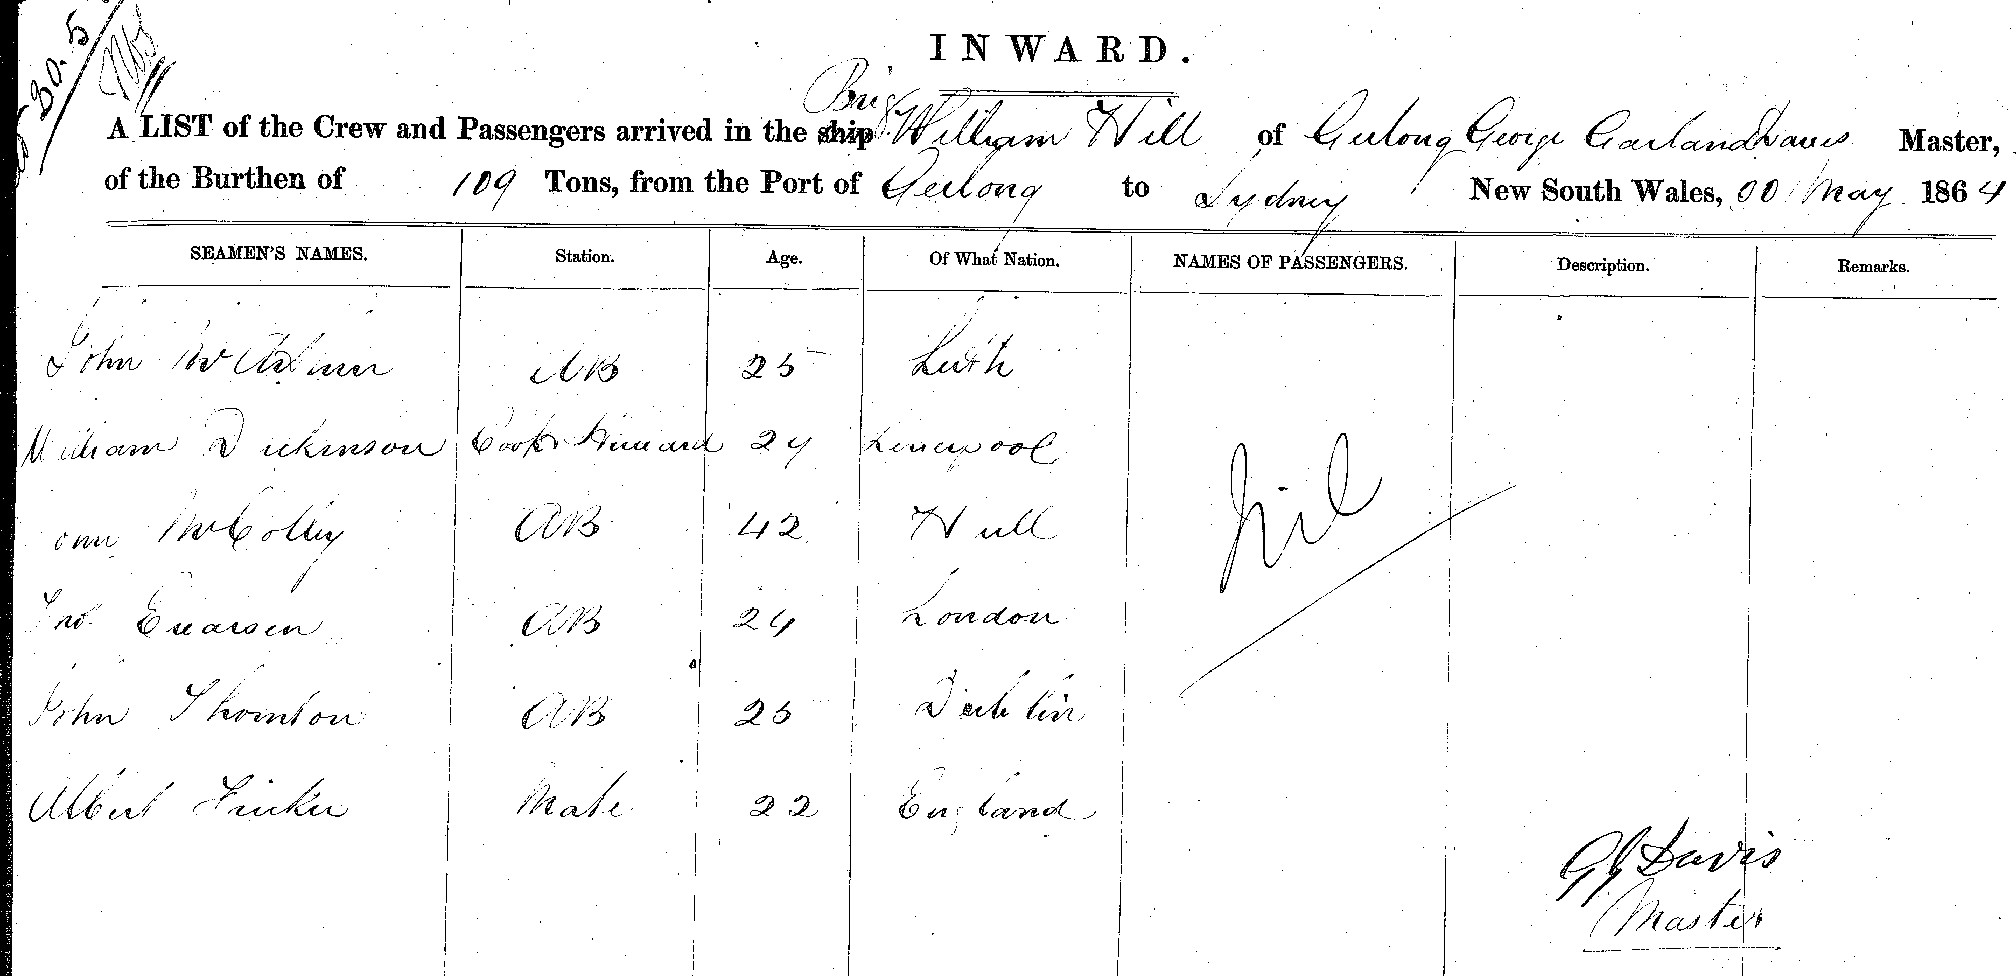 30.5
INWARD.
Brig
A LIST of the Crew and Passengers arrived in the ship William Hill of Geelong George Garland Davis Master,
of the Burthen of 109 Tons, from the Port of Geelong to Sydney New South Wales, 30 May 1864
SEAMEN'S NAMES. Station. Age. Of What Nation. NAMES OF PASSENGERS. Description. Remarks.
John AB 25 Leith
William Dickinson Cook Steward 24 Liverpool
McColly AB 42 Hull
Nil
Jno. AB 24 London
John Thornton AB 25 Dublin
Albert Mate 22 England
GG Davis
Master